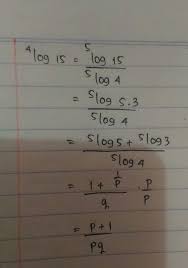 ⁴log 15 = ⁵log 15 / ⁵log 4
= ⁵log 5.3 / ⁵log 4
= ⁵log 5 + ⁵log 3 / ⁵log 4
= 1 + 1/p / q . p/p
= p + 1 / pq